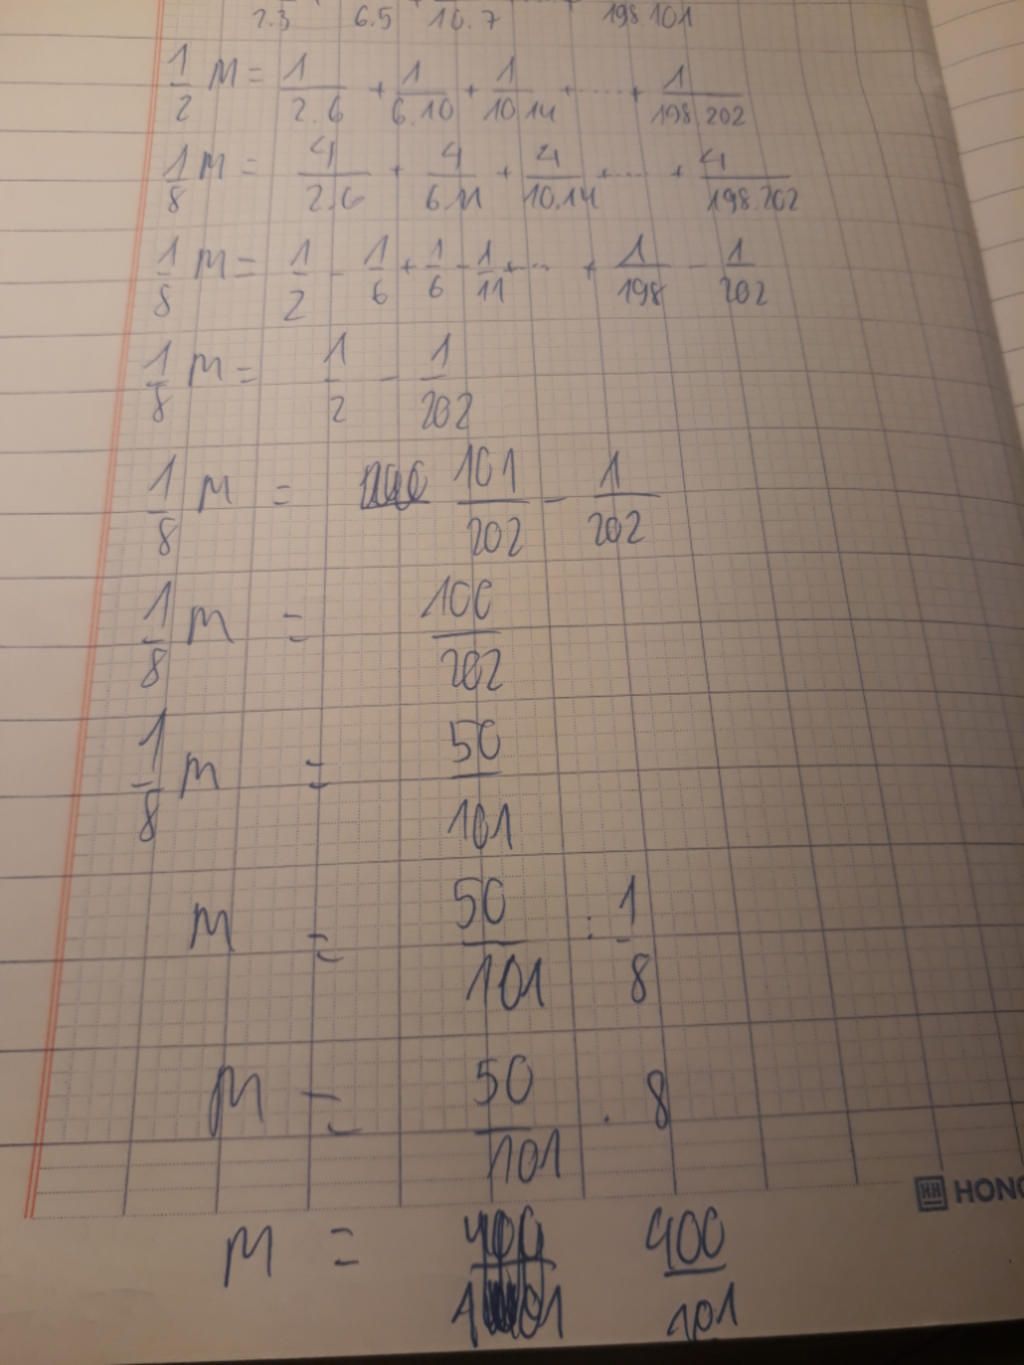 2.3 6.5 10.7 198.101
1/2 M = 1/2.6 + 1/6.10 + 1/10.14 + ..... + 1/198.202
1/8 M = 4/2.6 + 4/6.11 + 4/10.14 + .... + 4/198.202
1/8 M = 1/2 - 1/6 + 1/6 - 1/11 + ... + 1/198 - 1/202
1/8 M = 1/2 - 1/202
1/8 M = 101/202 - 1/202
1/8 M = 100/202
1/8 M = 50/101
M = 50/101 : 1/8
M = 50/101 . 8
HONG
M = 400/101